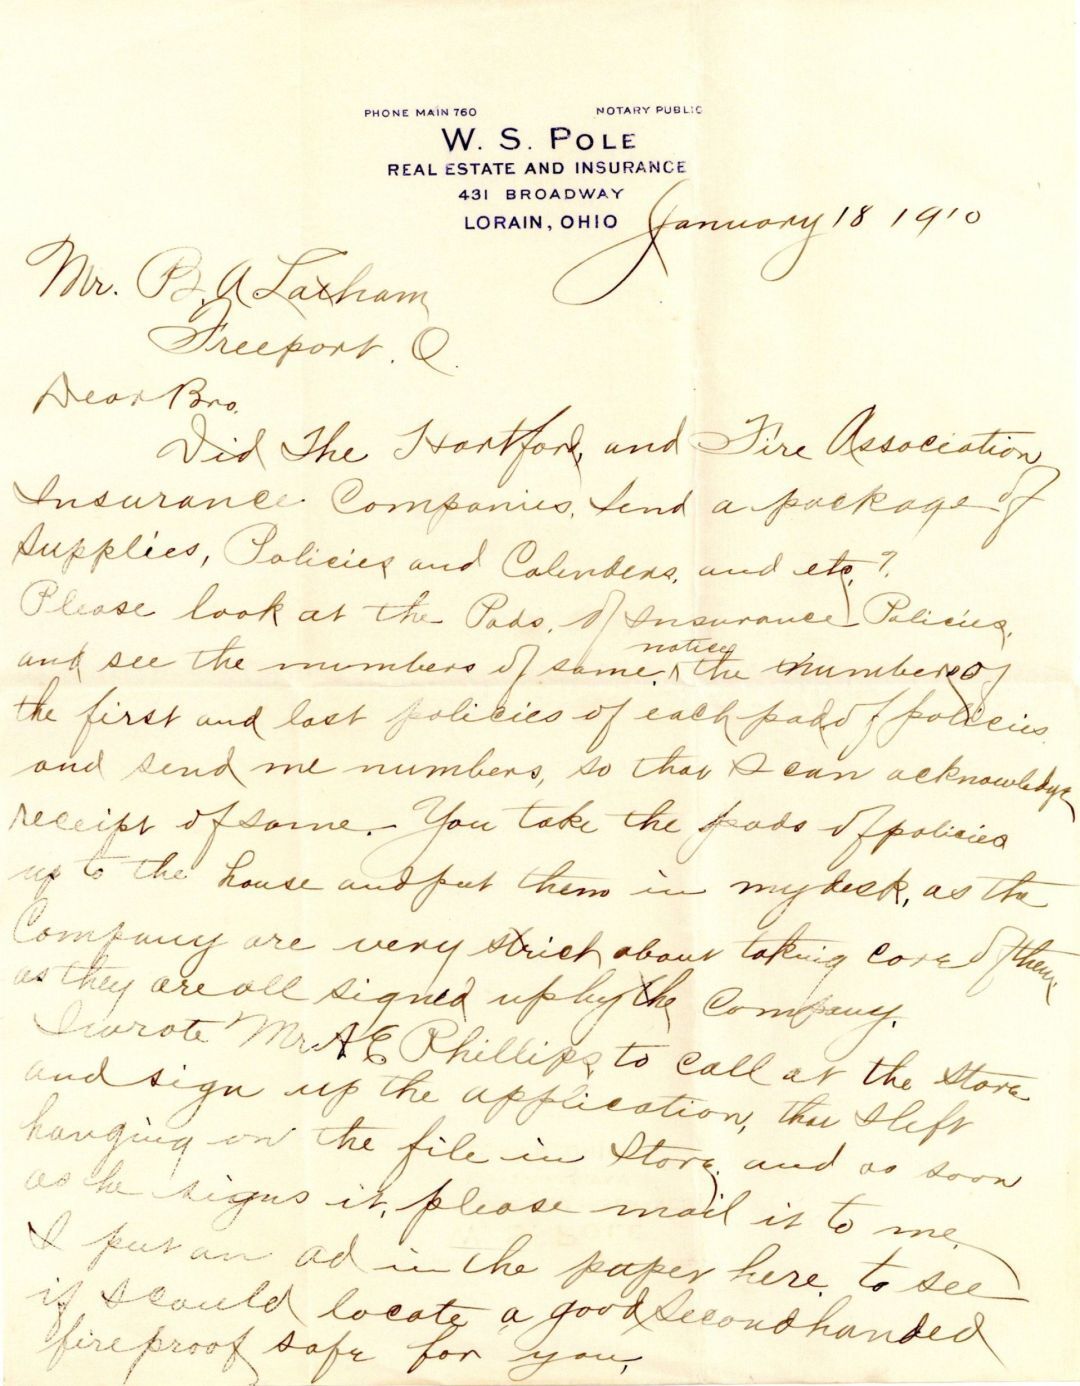 PHONE MAIN 760 NOTARY PUBLIC
W. S. POLE
REAL ESTATE AND INSURANCE
431 BROADWAY
LORAIN, OHIO
January 18 1910
Mr. B. A Latham
Freeport. O.
Dear Bro.
Did The Hartford, and Fire Association
Insurance Companies, send a package of
supplies, Policies and Calenders, and etc.?
Please look at the Pads, of Insurance Policies,
and see the numbers of same. notice the numbers of
the first and last policies of each pad of policies
and send me numbers, so that I can acknowledge
receipt of same. You take the pads of policies
up to the house and put them in my desk, as the
Company are very strict about taking care of them,
as they are all signed up by the Company.
I wrote Mr A E Phillips, to call at the store
and sign up the application, that I left
hanging on the file in Store, and as soon
as he signs it, please mail it to me.
I put an ad in the paper here, to see
if I could locate a good second handed
fireproof safe for you,